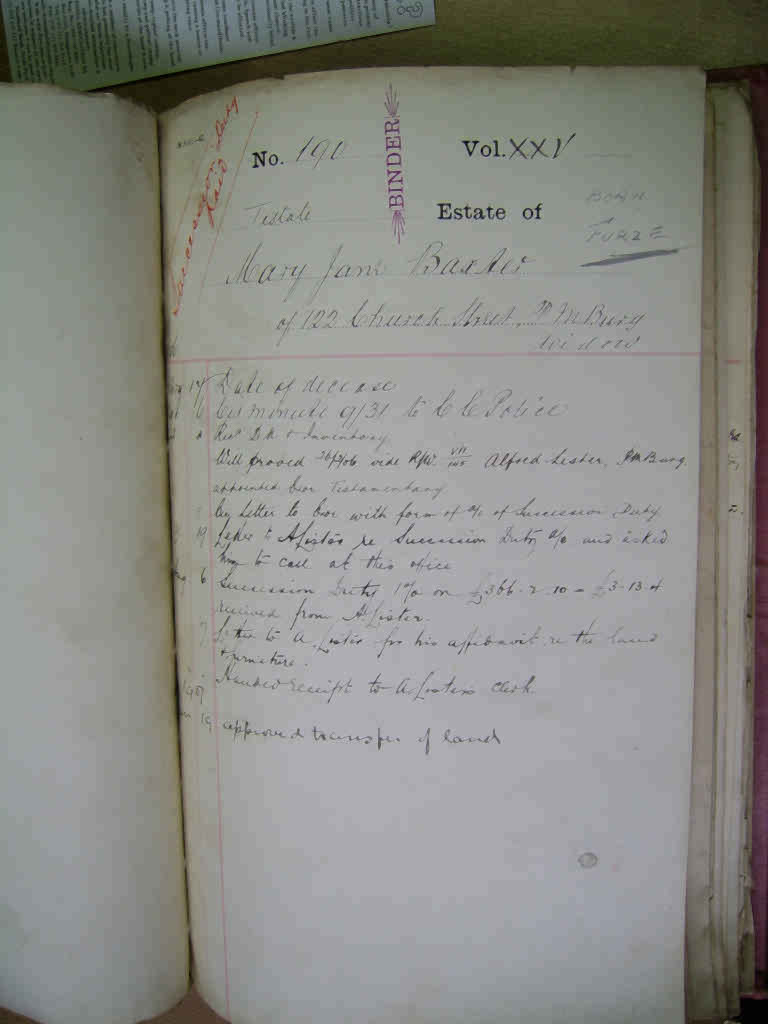 Succession Duty
Paid
No. 190
BINDER
Vol. XXV
Testate
Estate of
BORN
FURZE
Mary Jane Baxter
of 122 Church Street, P M Burg
widow
17 Date of decease
6 minute 9/31 to C C Police
Recd D N & Inventory
Will proved vide Alfred Lester, P M Burg.
appointed Exor Testamentary
Letter to Exor with form of a/c of Succession Duty
19 Letter to A Lister re Succession Duty a/c and asked
him to call at this office
6 Succession Duty 1% on £366-2-10 = £3-13-4
received from A Lister.
7 Letter to A Lister for his affidavit re the land
& furniture.
Handed receipt to A Lister's clerk.
1907
19 approved transfer of land